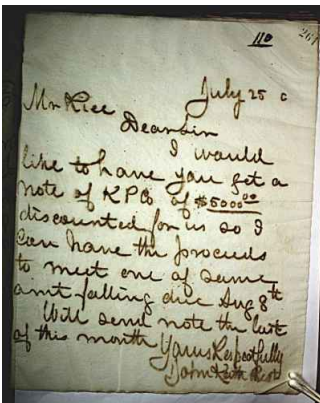 110
261
July 25
Mr Rice
Dear Sir
I would
like to have you get a
note of KPCo of $5000.00
discounted for us so I
can have the proceeds
to meet one of same
amt falling due Aug 8th
Will send note the last
of this month
Yours Respectfully
John Keith